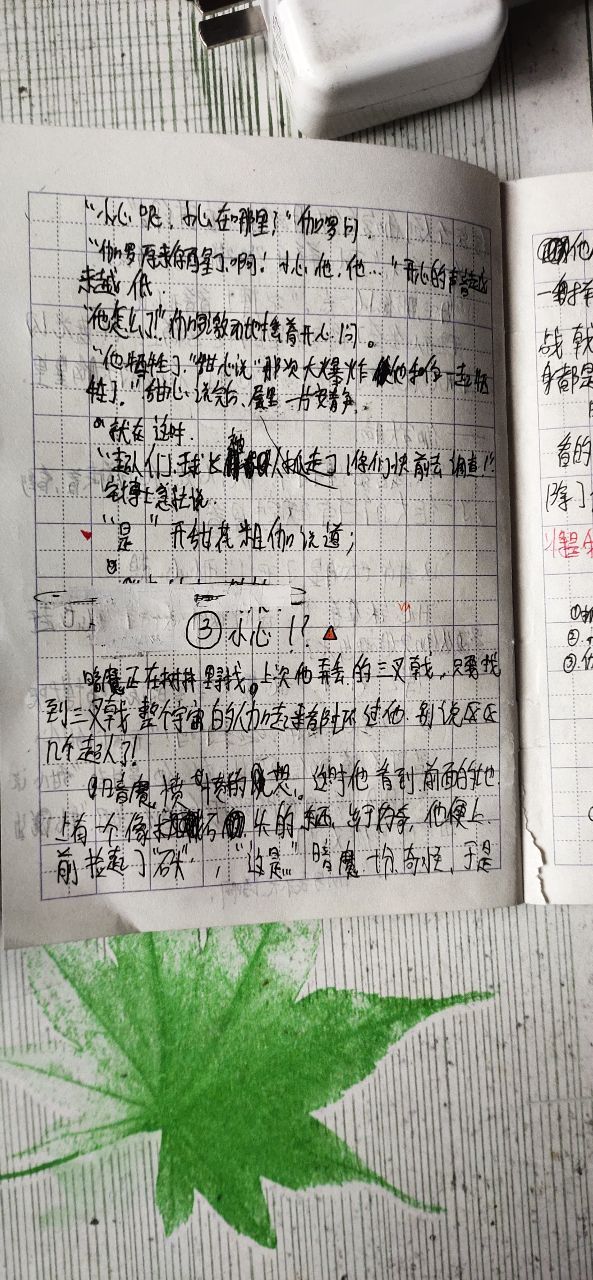 "小心呢,小心在哪里?"伽罗问.
"伽罗原来你再星了啊!小心他,他…"开心的声音越
来越低.
"他怎么了!"伽罗激动地拉着开心问。
"他牺牲了."甜心说"那次大爆炸他和你一起牺
牲了."甜心说完后,屋里一片安静.
就在这时.
"超人们,球长被神秘人抓走了!你们快前去调查!"
宅博士急忙说.
"是"开甜花粗伽说道;
③小心!?
暗魔正在树林里寻找。上次他弄丢的三叉戟,只要找
到三叉戟整个宇宙的人加起来都阻不过他.别说区区
几个超人了!
暗魔愤愤的想。这时他看到前面的地
上有一个像石头的东西,出于内奇,他便上
前捡起了"石头","这是…"暗魔一分奇怪,于是
他
一
战戟
身都是
着的
除了
①
②
③